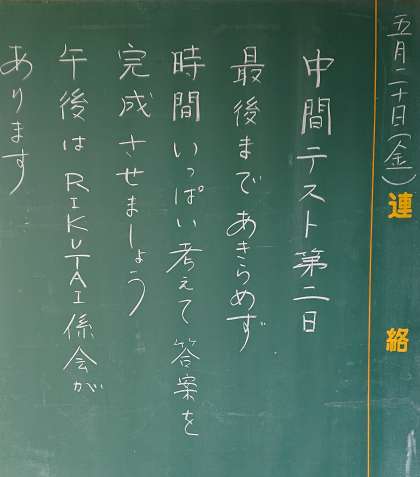 五月二十日(金)
連絡
中間テスト第二日
最後まであきらめず
時間いっぱい考えて答案を
完成させましょう
午後はRIKUTAI係会が
あります